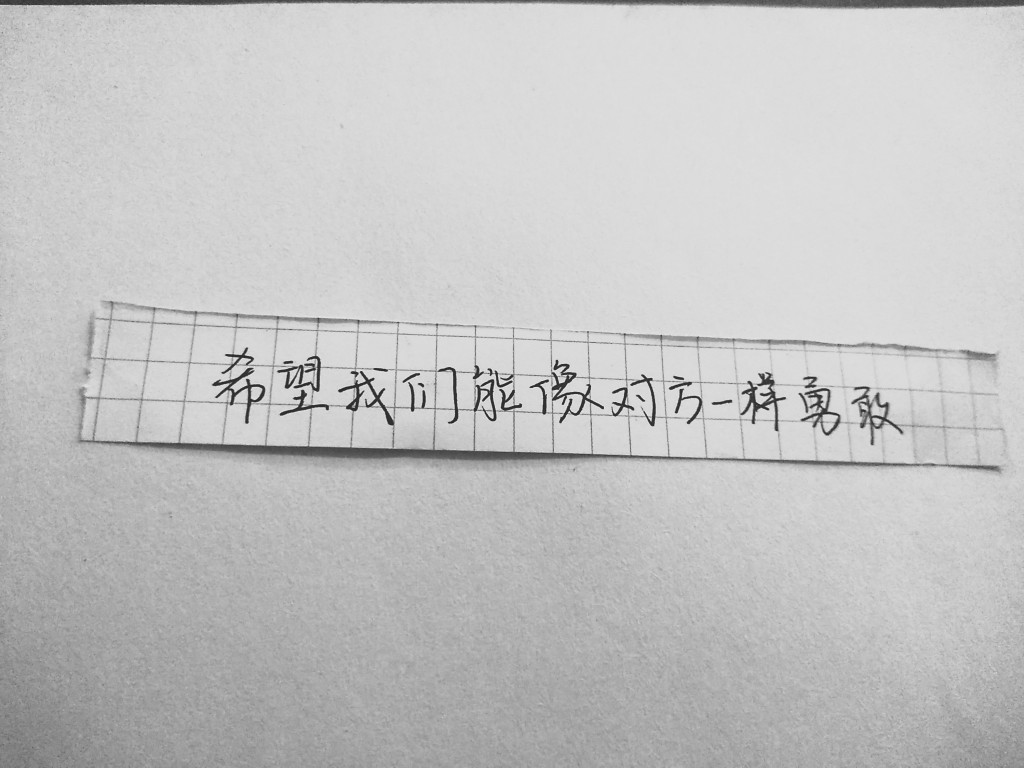 希望我们能像对方一样勇敢